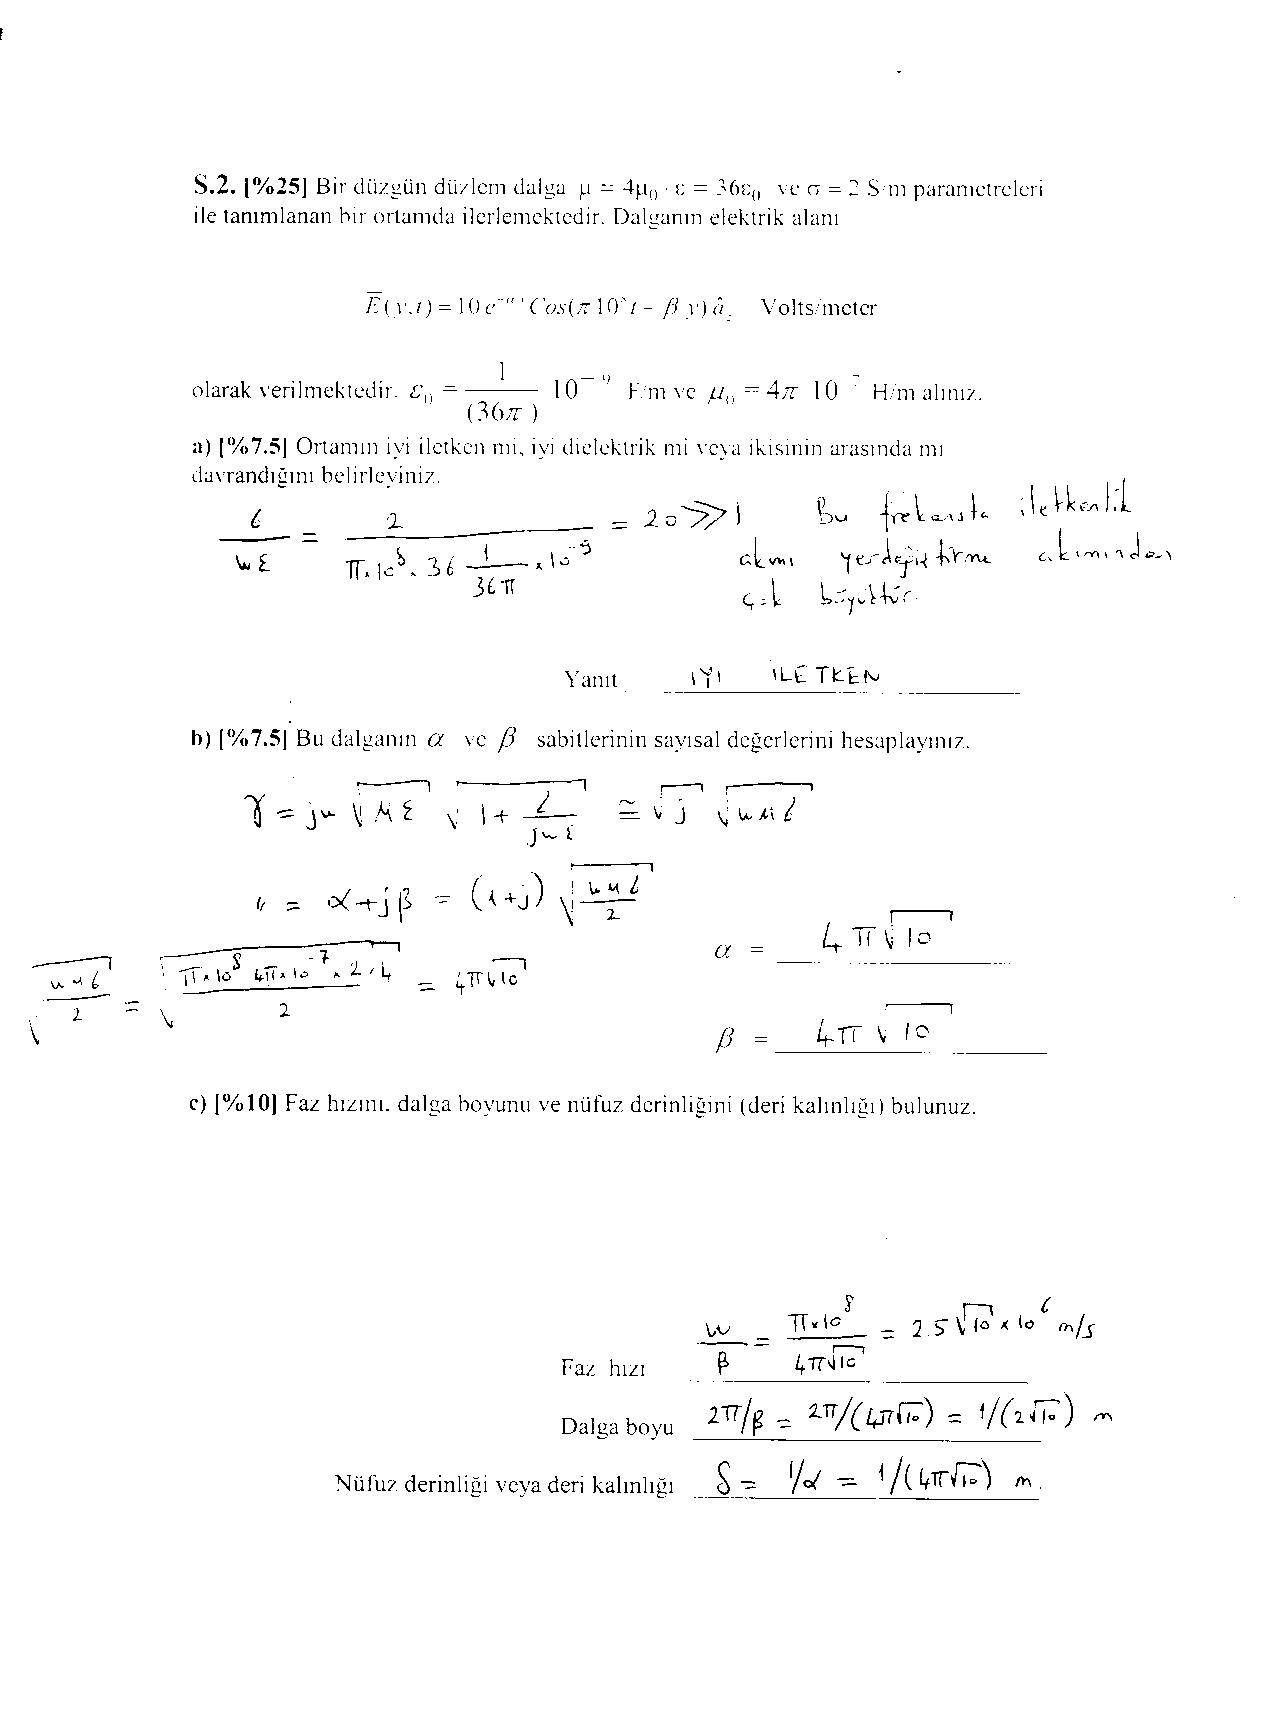 S.2. [%25] Bir düzgün düzlem dalga μ = 4μ₀, ε = 36ε₀ ve σ = 2 S/m parametreleri
ile tanımlanan bir ortamda ilerlemektedir. Dalganın elektrik alanı
E̅(y,t) = 10 e^(-αy) Cos(π10⁸t - β y) â_z Volts/meter
olarak verilmektedir. ε₀ = 1/(36π) 10⁻⁹ F/m ve μ₀ = 4π 10⁻⁷ H/m alınız.
a) [%7.5] Ortamın iyi iletken mi, iyi dielektrik mi veya ikisinin arasında mı
davrandığını belirleyiniz.
σ/(ωε) = 2/(π×10⁸ × 36 1/(36π) × 10⁻⁹) = 20 >> 1 Bu frekansta iletkenlik
akımı yerdeğiştirme akımından
çok büyüktür.
Yanıt İYİ İLETKEN
b) [%7.5] Bu dalganın α ve β sabitlerinin sayısal değerlerini hesaplayınız.
γ = jω √(με) √(1 + σ/(jωε)) ≅ √j √(ωμσ)
" = α+jβ = (1+j) √(ωμσ/2)
α = 4π√10
√(ωμσ/2) = √(π×10⁸ 4π×10⁻⁷ × 2 × 4 / 2) = 4π√10
β = 4π√10
c) [%10] Faz hızını, dalga boyunu ve nüfuz derinliğini (deri kalınlığı) bulunuz.
Faz hızı ω/β = π×10⁸/(4π√10) = 2.5√10 × 10⁶ m/s
Dalga boyu 2π/β = 2π/(4π√10) = 1/(2√10) m
Nüfuz derinliği veya deri kalınlığı δ = 1/α = 1/(4π√10) m.